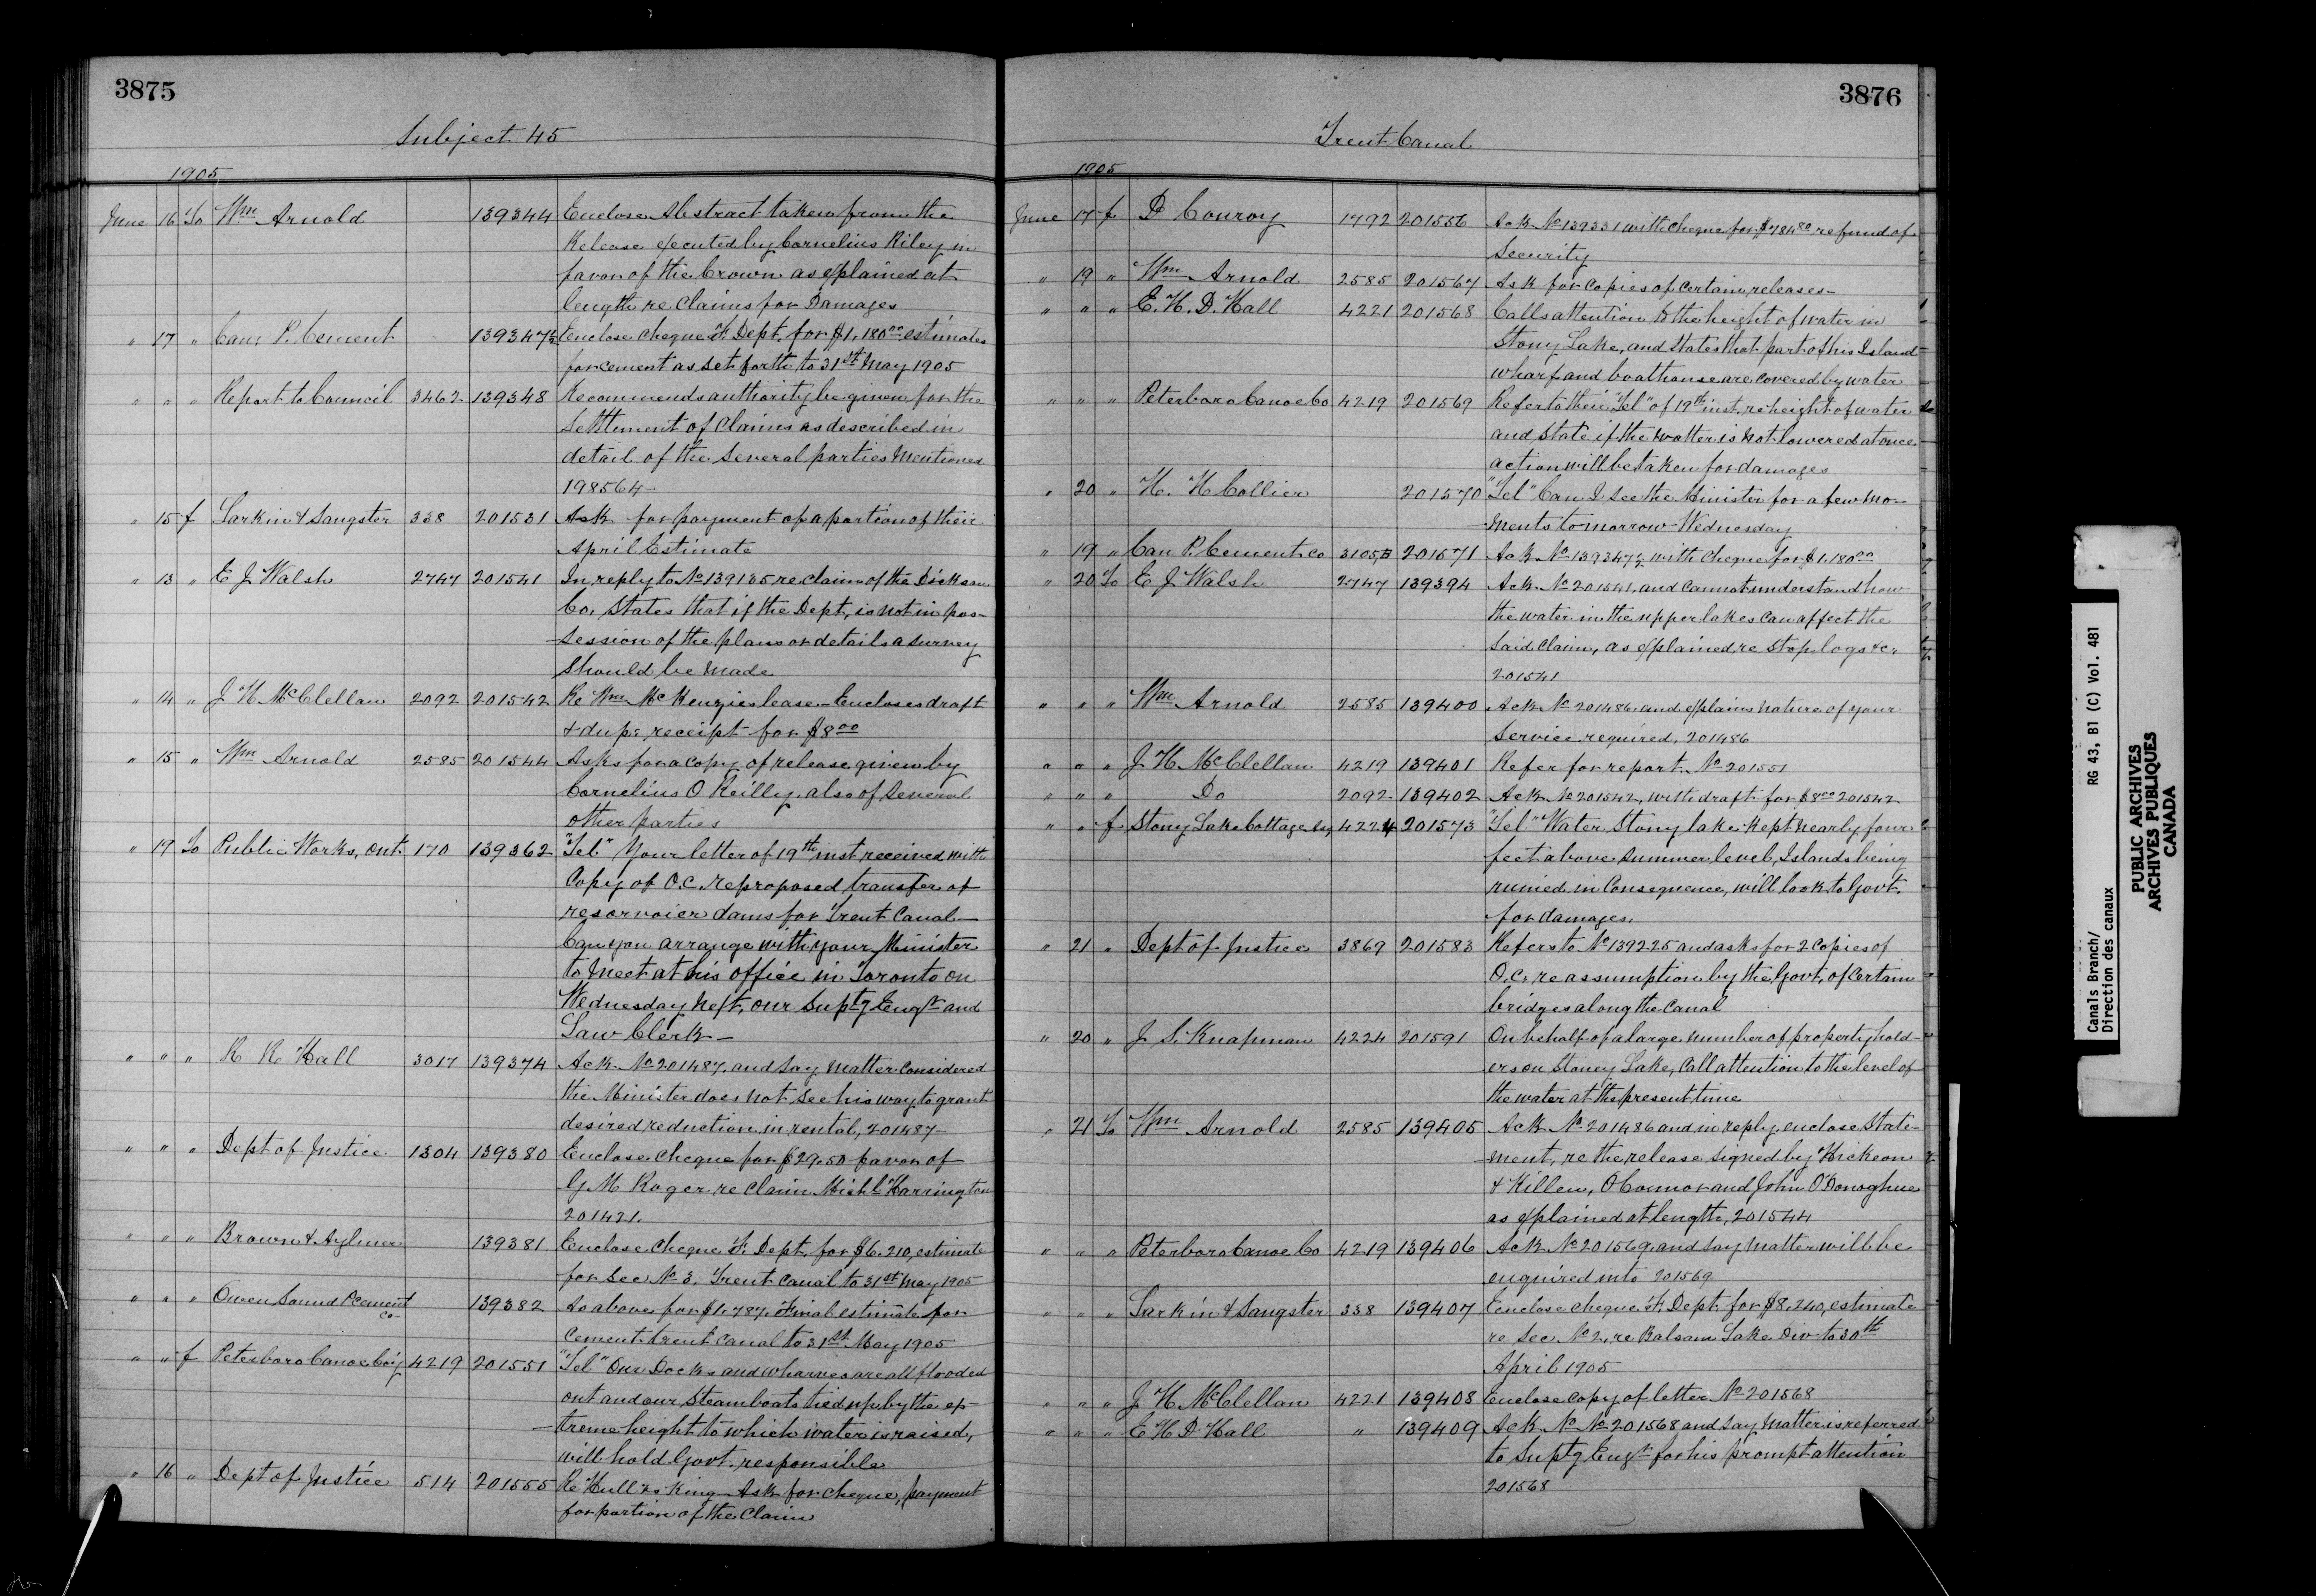 3875
Subject 45
1905
June 16 To Wm Arnold 139344 Enclose Abstract taken from the
Release executed by Cornelius Riley in
favor of the Crown as explained at
length re Claims for Damages
" 17 " Can. P. Cement 139347½ Enclose cheque F. Dept. for $1,180.00 estimates
for cement as set forth to 31st May 1905
" " " Report to Council 3462 139348 Recommends authority be given for the
Settlement of Claims as described in
detail of the several parties mentioned
198564
" 15 f Larkin & Sangster 338 201531 Ask for payment of a portion of their
April Estimate
" 13 " E J Walsh 2747 201541 In reply to No 139135 re claim of the Dickson
Co. States that if the Dept. is not in pos-
session of the plans or details a survey
should be made
" 14 " J H McClellan 2092 201542 Re Wm McKenzies lease - Encloses draft
& dup: receipt for $8.00
" 15 " Wm Arnold 2585 201544 Asks for a copy of release given by
Cornelius O Reilly also of several
other parties
" 19 To Public Works, Ont. 170 139362 "Tel" Your letter of 19th inst received with
Copy of O.C. re proposed transfer of
resorvoier dams for Trent Canal—
Can you arrange with your Minister
to meet at his office in Toronto on
Wednesday next, our Suptg Engr and
Law Clerk—
" " " R R Hall 3017 139374 Ack No 201487, and say matter considered
the Minister does not see his way to grant
desired reduction in rental, 201487—
" " " Dept of Justice 1304 139380 Enclose cheque for $29.50 favor of
G M Roger re claim Michl Harrington
201421.
" " " Brown & Aylmer 139381 Enclose cheque F. Dept. for $6.210, estimate
for Sec No 3. Trent Canal to 31st May 1905
" " " Owen Sound P Cement Co 139382 As above for $1,787, Final estimate for
Cement trent Canal to 31st May 1905
" " f Peterboro Canoe Coy 4219 201551 "Tel" Our Docks and wharves are all flooded
out and our steamboats tied up by the ex-
treme height to which water is raised,
will hold Govt. responsible
" 16 " Dept of Justice 514 201555 Re Hull vs King - Ask for cheque, payment
for portion of the Claim
3876
Trent Canal
1905
June 17 f D Conroy 1792 201556 Ack No 139331 with cheque for $784.80 refund of
Security
" 19 " Wm Arnold 2585 201567 Ask for copies of certain releases—
" " " E. H. D. Hall 4221 201568 Calls attention to the height of water in
Stony Lake, and states that part of his Island
wharf and boathouse are covered by water
" " " Peterboro Canoe Co 4219 201569 Refer to their "Tel" of 19th inst. re height of water
and state if the watter is not lowered at once
action will be taken for damages
" 20 " H. H Collier 201570 "Tel" Can I see the Minister for a few mo-
ments tomorrow Wednesday
" 19 " Can P. Cement Co 3105B 201571 Ack No 139347½ with cheque for $1,180.00
" 20 To E J Walsh 2747 139394 Ack No 201541, and cannot understand how
the water in the upper lakes can affect the
said claim, as explained re stop logs &c.
201541
" " " Wm Arnold 2585 139400 Ack No 201486, and explains nature of your
service required, 201486
" " " J H McClellan 4219 139401 Refer for report No 201551
" " " Do 2092 139402 Ack No 201542, with draft for $8.00 201542
" " f Stony Lake Cottage 4224 201573 "Tel" Water Stony lake kept nearly four
feet above summer level, Islands being
ruined in consequence, will look to Govt.
for damages.
" 21 " Dept of Justice 3869 201583 Refers to No 139225 and asks for 2 copies of
O.C. re assumption by the Govt. of certain
bridges along the canal
" 20 " J S. Knapman 4224 201591 On behalf of a large number of property hold-
ers on Stoney Lake, Call attention to the level of
the water at the present time
" 21 To Wm Arnold 2585 139405 Ack No 201486 and in reply, enclose state-
ment, re the release signed by Hickson
& Killen, O Connor and John O'Donoghue
as explained at length, 201544
" " " Peterboro Canoe Co 4219 139406 Ack No 201569, and say matter will be
enquired into 201569
" " " Larkin & Sangster 338 139407 Enclose cheque F. Dept for $8.240, estimate
re Sec No 2, re Balsam Lake Div to 30th
April 1905
" " " J H McClellan 4221 139408 Enclose copy of letter No 201568
" " " E H D Hall " 139409 Ack No No 201568 and say matter is referred
to Suptg Engr for his prompt attention
201568
Canals Branch/ RG 43, B1 (C) Vol. 481
Direction des canaux
PUBLIC ARCHIVES
ARCHIVES PUBLIQUES
CANADA